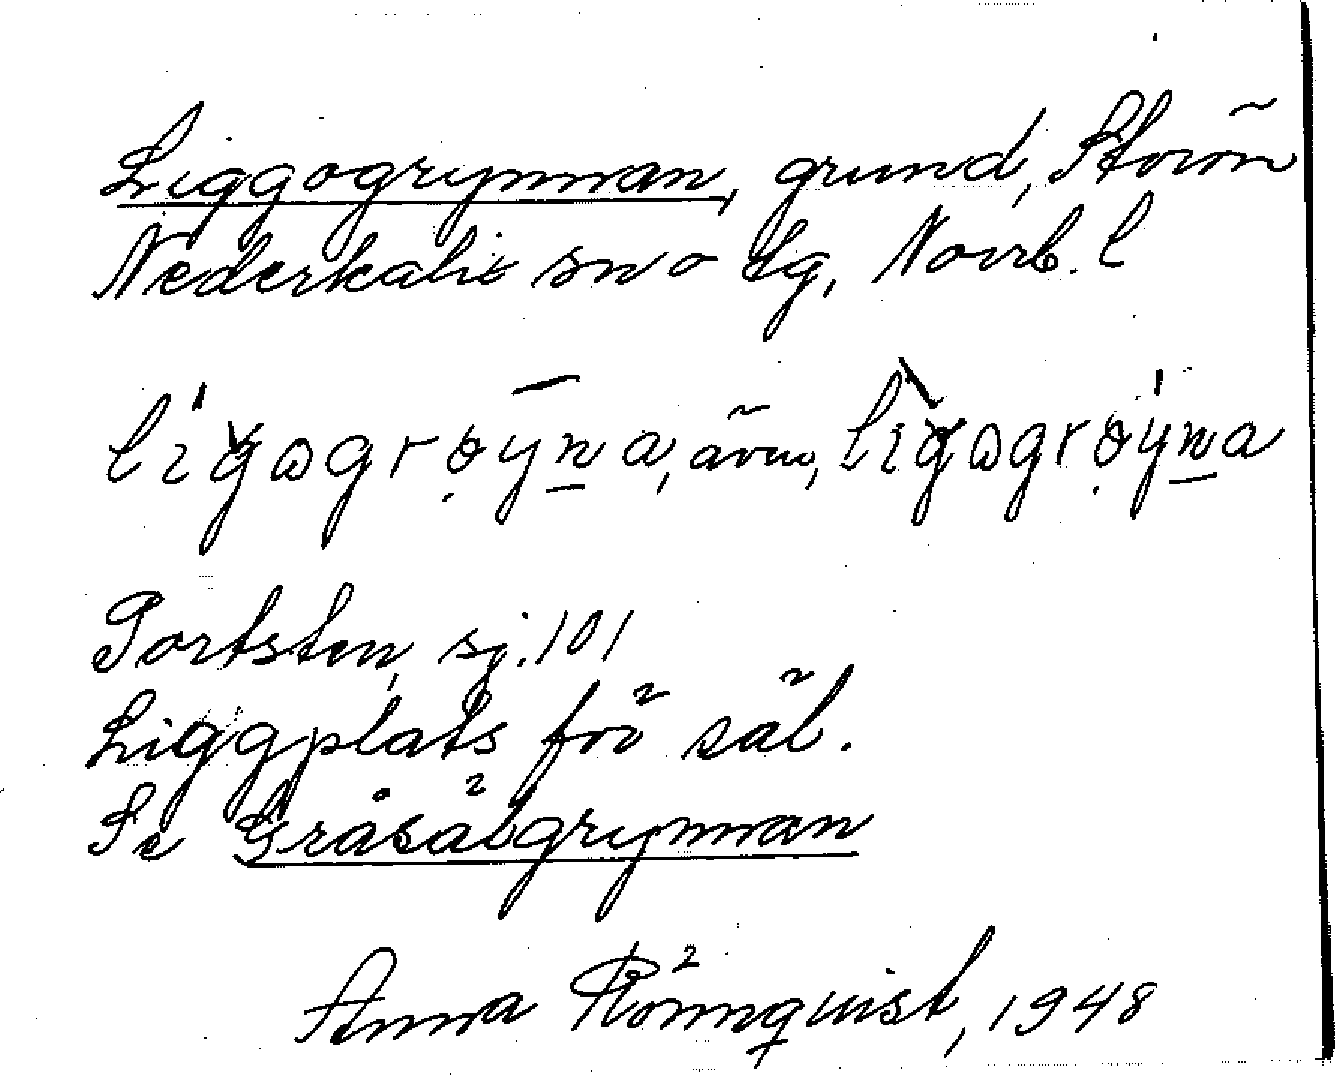 Liggogrynnan, grund, Storön
Nederkalix sn o tg, Norrb. l
lìgogrøyna, även, lìgogrøyna
Portsten, sj. 101
Liggplats för säl.
Se Gråsälgrynnan
Anna Rönnquist, 1948